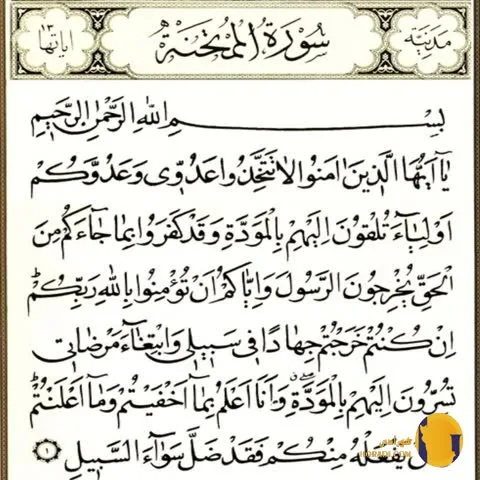 مدنية سورة الممتحنة اياتها ١٣
بسم الله الرحمن الرحيم
يا ايها الذين امنوا لا تتخذوا عدوي وعدوكم
اولياء تلقون اليهم بالمودة وقد كفروا بما جاءكم من
الحق يخرجون الرسول واياكم ان تؤمنوا بالله ربكم
ان كنتم خرجتم جهادا في سبيلي وابتغاء مرضاتي
تسرون اليهم بالمودة وانا اعلم بما اخفيتم وما اعلنتم
يفعله منكم فقد ضل سواء السبيل ١